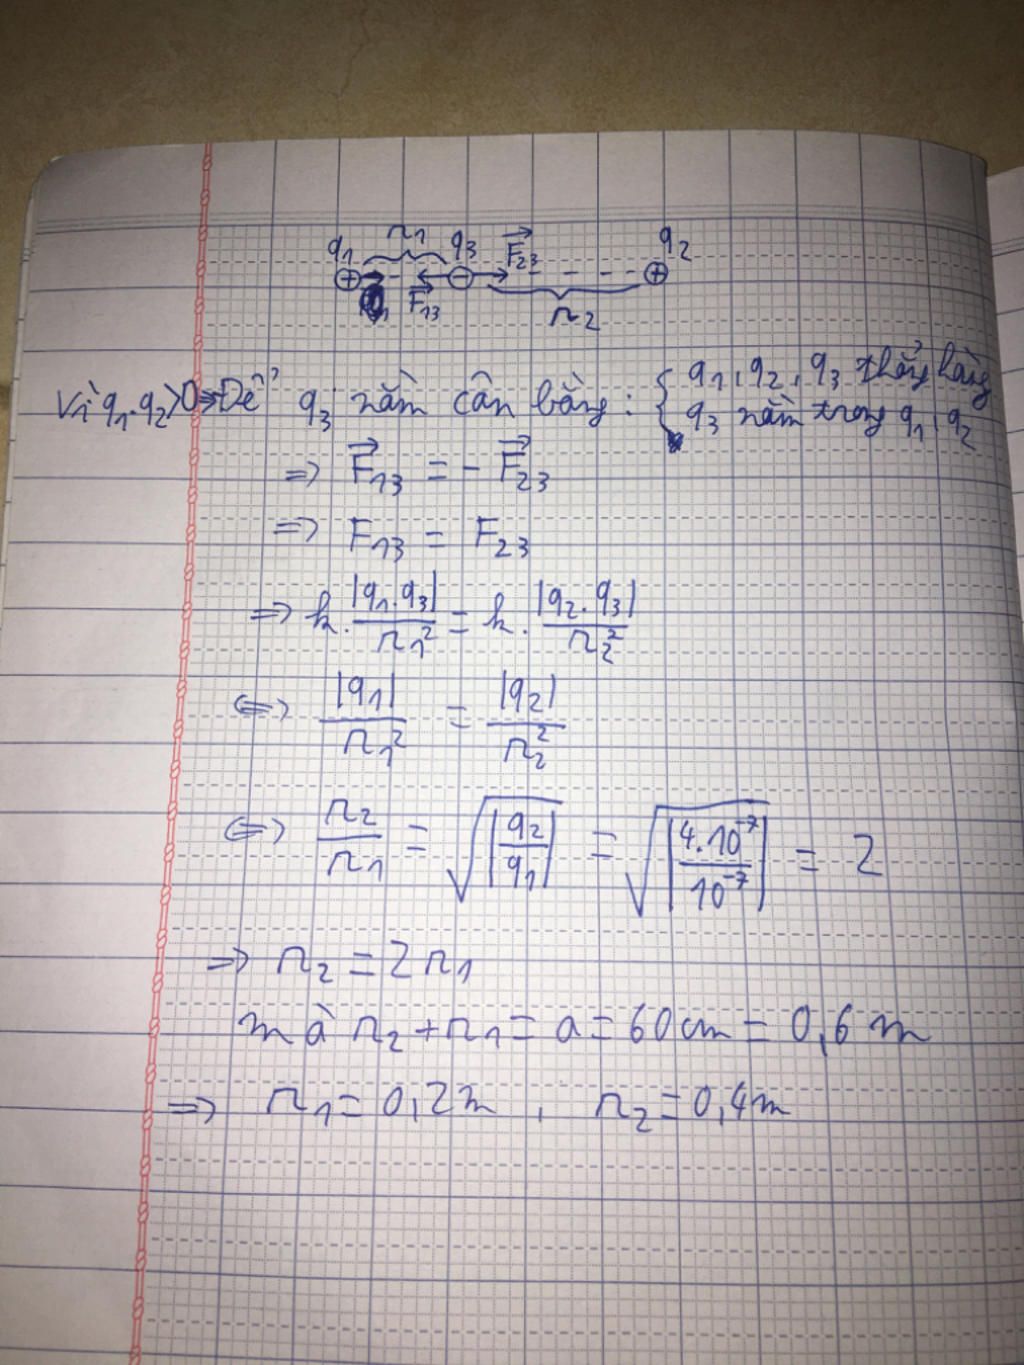 q₁ r₁ q₃ F⃗₂₃ q₂
⊕ F⃗₁₃ ⊖ ⊕
r₂
Vì q₁.q₂>0 ⇒ Để q₃ nằm cân bằng: { q₁, q₂, q₃ thẳng hàng
q₃ nằm trong q₁, q₂
⇒ F⃗₁₃ = - F⃗₂₃
⇒ F₁₃ = F₂₃
⇒ k. |q₁.q₃|/r₁² = k. |q₂.q₃|/r₂²
⇔ |q₁|/r₁² = |q₂|/r₂²
⇔ r₂/r₁ = √|q₂/q₁| = √|4.10⁻⁷/10⁻⁷| = 2
⇒ r₂ = 2r₁
mà r₂ + r₁ = a = 60cm = 0,6 m
⇒ r₁ = 0,2m , r₂ = 0,4m